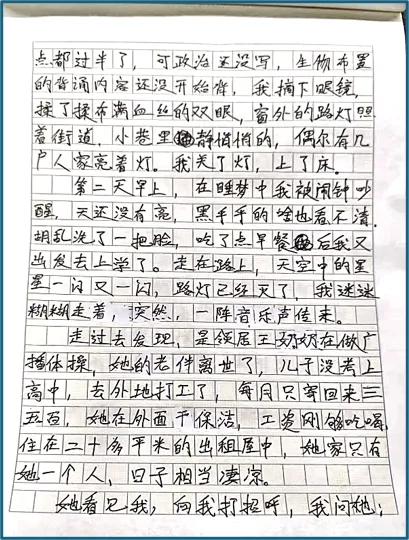 点都过半了，可政治还没写，生物布置
的背诵内容还没开始背，我摘下眼镜，
揉了揉布满血丝的双眼，窗外的路灯照
着街道，小巷里静悄悄的，偶尔有几
户人家亮着灯。我关了灯，上了床。
第二天早上，在睡梦中我被闹钟吵
醒，天还没有亮，黑乎乎的啥也看不清。
胡乱洗了一把脸，吃了点早餐后我又
出发去上学了。走在路上，天空中的星
星一闪又一闪，路灯已经灭了，我迷迷
糊糊走着，突然，一阵音乐声传来。
走过去发现，是邻居王奶奶在做广
播体操，她的老伴离世了，儿子没考上
高中，去外地打工了，每月只寄回来三
五百，她在外面干保洁，工资刚够吃喝，
住在二十多平米的出租屋中，她家只有
她一个人，日子相当凄凉。
她看见我，向我打招呼，我问她：